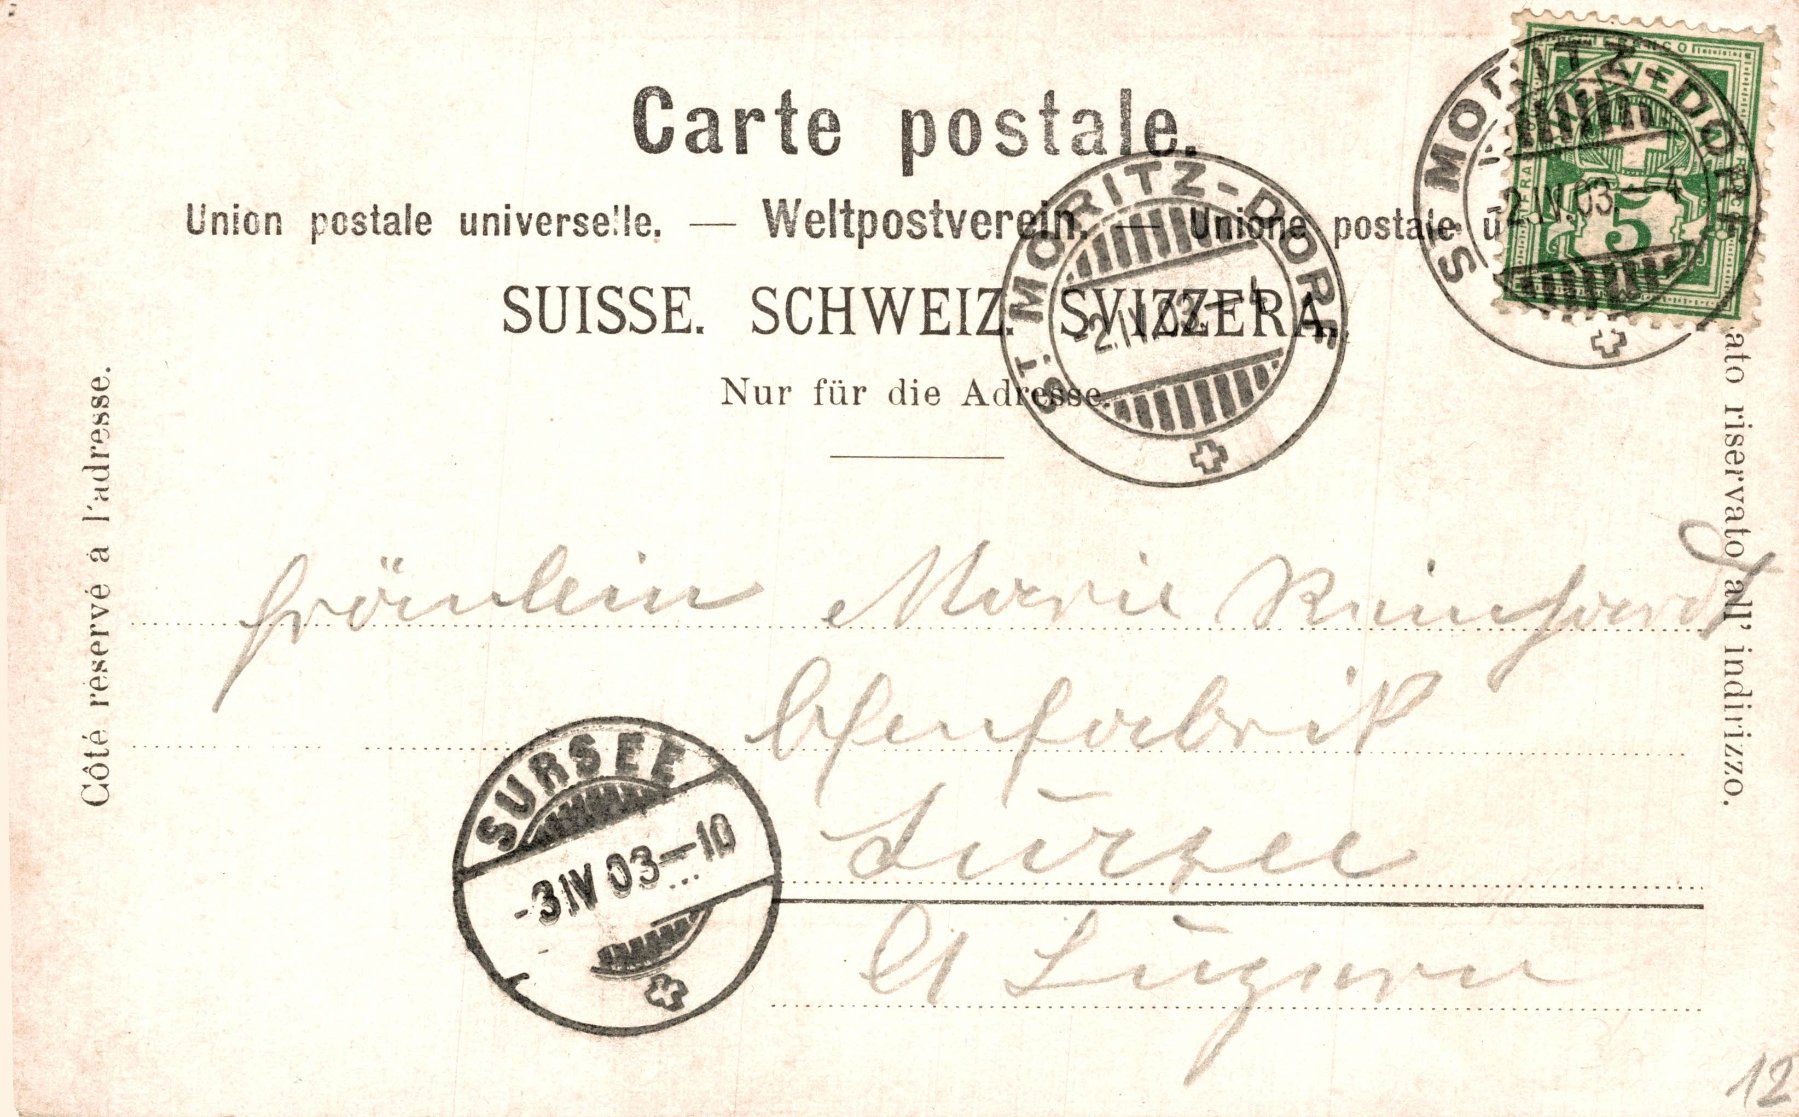 Carte postale.
Union postale universelle. — Weltpostverein. — Unione postale u
SUISSE. SCHWEIZ. SVIZZERA.
Nur für die Adresse.
Côté réservé à l'adresse.
ato riservato all' indirizzo.
FRANCO
5
ST. MORITZ-DORF
-2.IV.03.-4
ST. MORITZ-DORF
-2.IV.03.-4
fröunlein Marie
Ofenfabrik
Sürsee
Ct Luzern
SURSEE
-3 IV 03-10
12